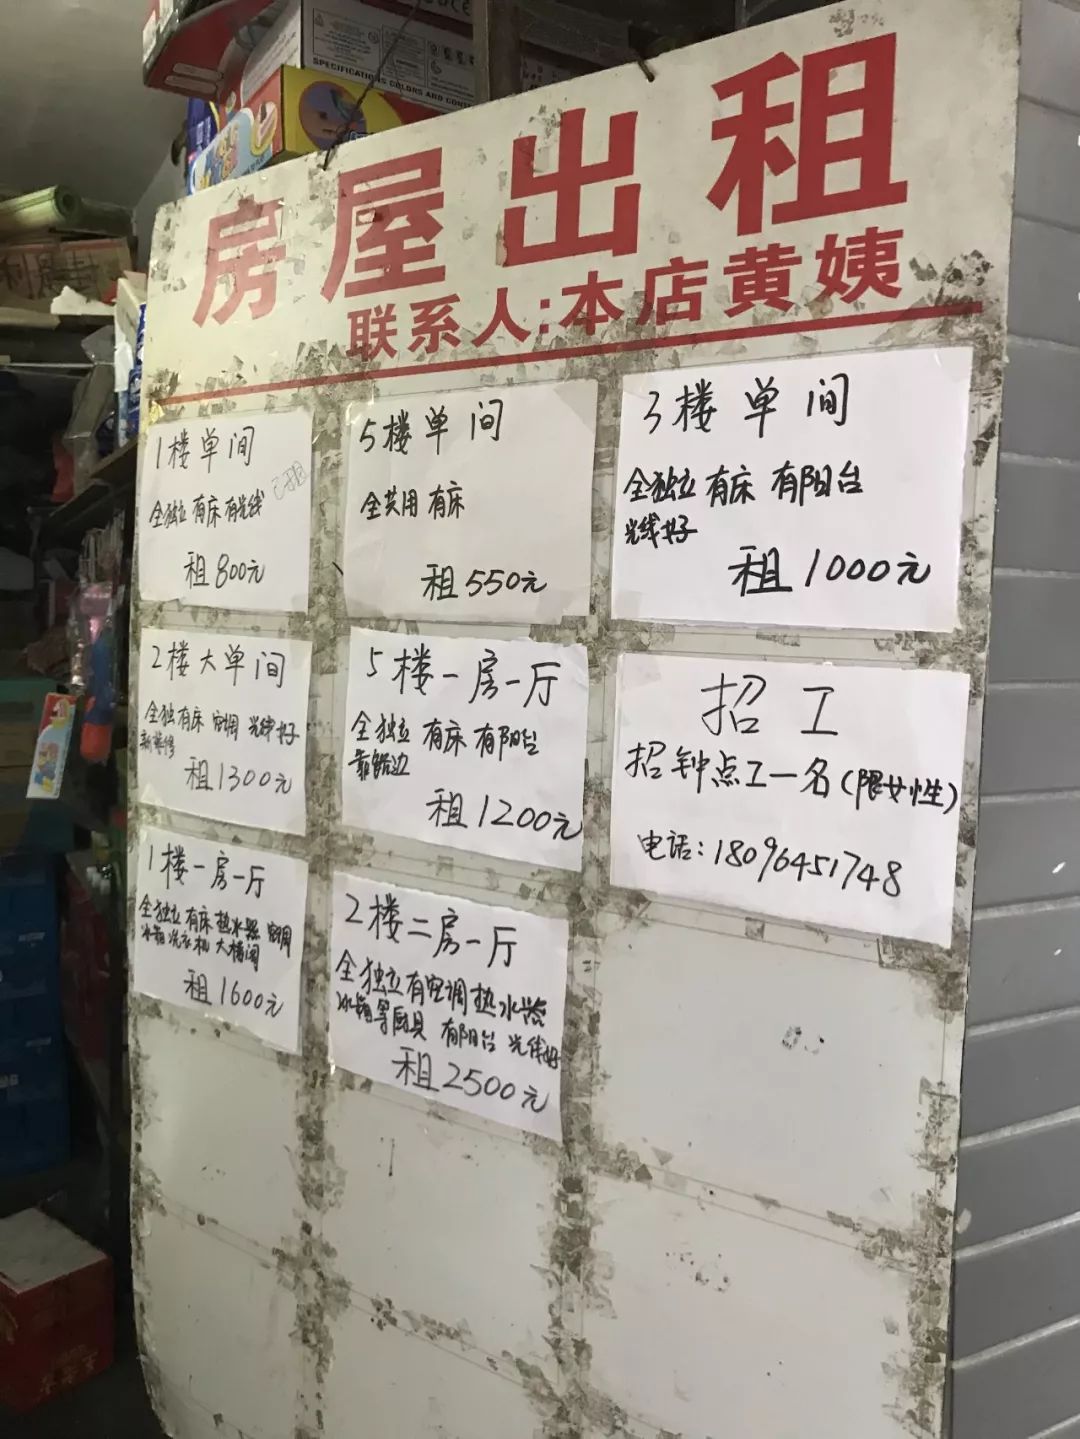 SPECIFICATIONS COLORS AND CONT
房屋出租
联系人:本店黄姨
1楼单间
已租
全独立 有床 有光线
租800元
5楼单间
全共用 有床
租550元
3楼单间
全独立 有床 有阳台
光线好
租1000元
2楼大单间
全独有床 空调 光线好
新装修
租1300元
5楼一房一厅
全独立 有床 有阳台
靠路边
租1200元
招工
招钟点工一名(限女性)
电话:18096451748
1楼一房一厅
全独立 有床 热水器 空调
冰箱 洗衣机 大楼阁
租1600元
2楼二房一厅
全独立有空调热水器
冰箱等厨具 有阳台 光线好
租2500元